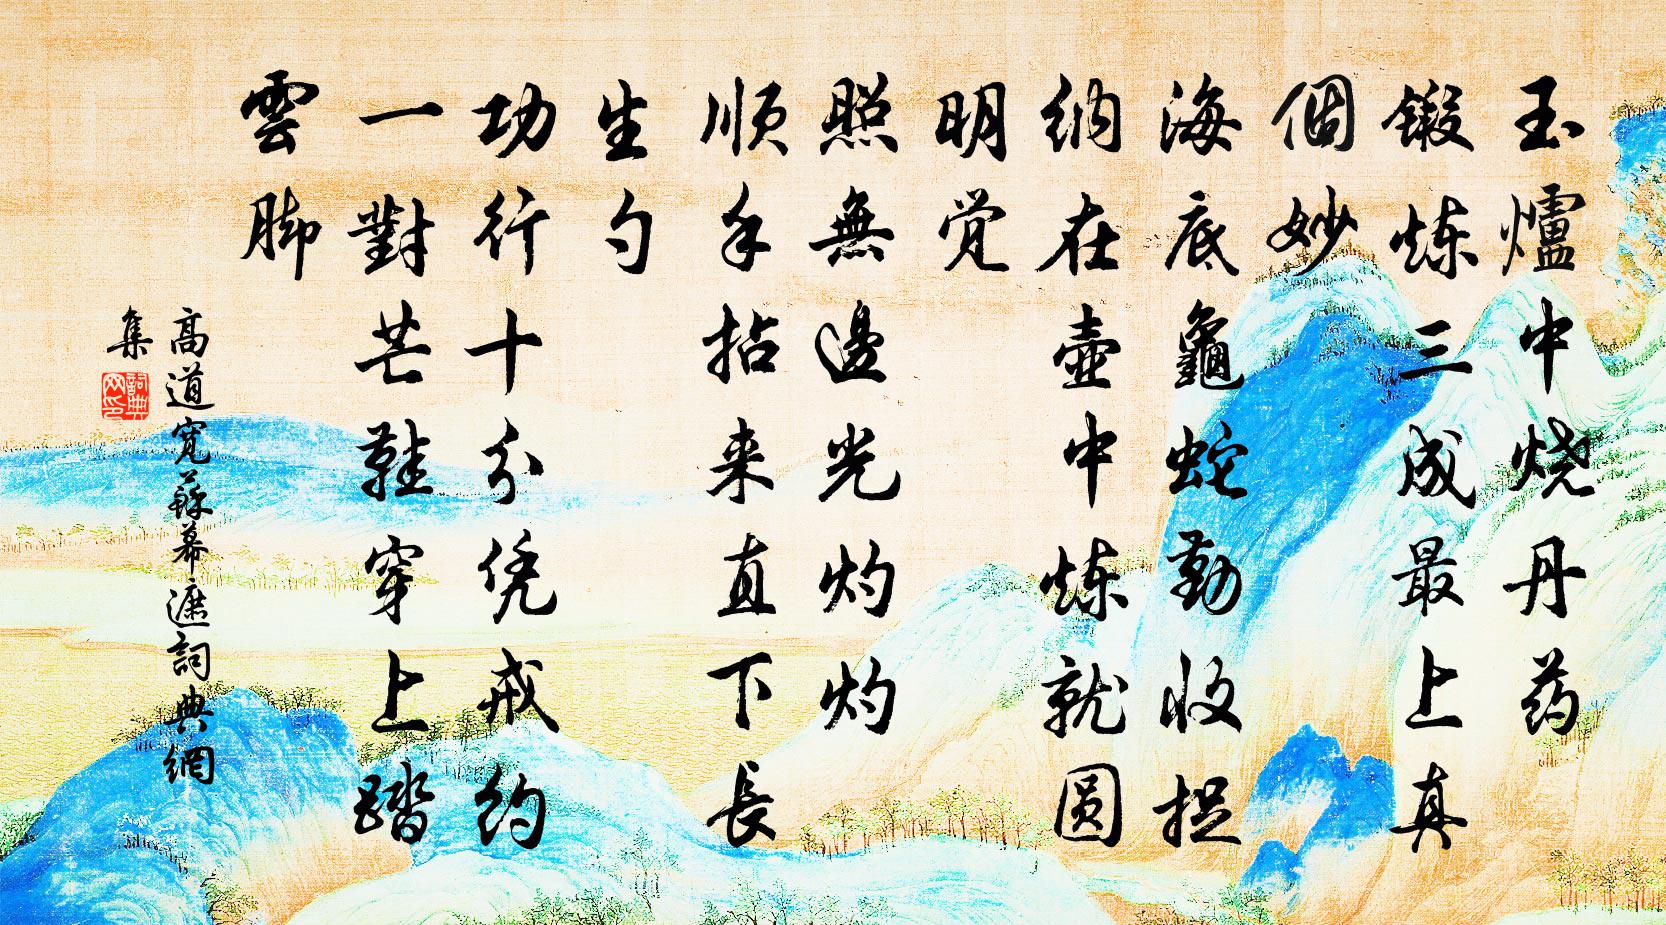 玉爐中烧丹药
鍛炼三成最上真
個妙
海底龜蛇勤收捉
纳在壺中炼就圆
明觉
照無邊光灼灼
顺手拈来直下長
生勺
功行十分凭戒约
一對芒鞋穿上踏
雲脚
高道寬蘇幕遮詞典網
集
詞典网印